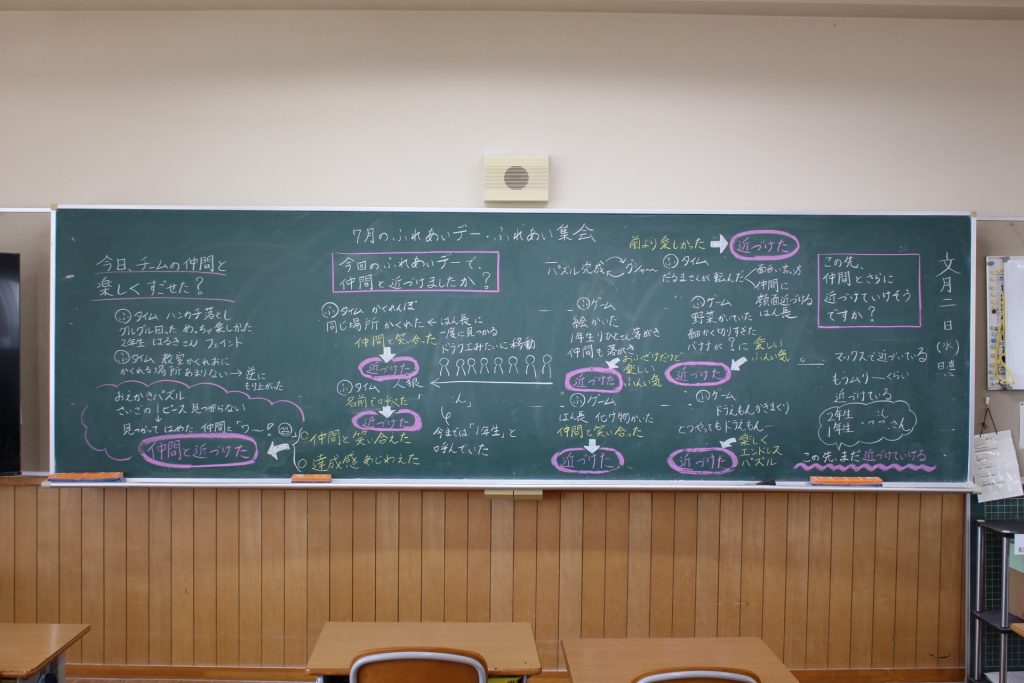 7月のふれあいデー・ふれあい集会
文月二日(水)
日恵
今日、チームの仲間と
楽しくすごせた？
タイム ハンカチ落とし
グルグル回った めっちゃ楽しかた
2年生 はるきさん フェイント
タイム 教室かくれおに
かくれる場所あまりない→逆に
もり上がった
おえかきパズル
さいごの1ピース 見つからない
見つかって はめた 仲間と「ワ〜」
仲間と近づけた
仲間と笑い合えた
達成感あじわえた
今回のふれあいデーで、
仲間と近づけましたか？
タイム かくれんぼ
同じ場所 かくれた ← はん長に
一度に見つかる
ドラクエみたいに移動
仲間と笑い合った
近づけた
タイム 人狼
名前で呼べた
近づけた
今までは「1年生」と
呼んでいた
前より楽しかった → 近づけた
パズル完成
タイム
だるまさんが転んだ
面白い言い方
仲間に
はん長
ゲーム
絵かいた
1年生りひとさん 落がき
仲間も落がき
楽しい
ふんい気
近づけた
ゲーム
はん長 化け物かいた
仲間と笑い合った
近づけた
ゲーム
野菜かいていた
細かく切りすぎた
バナナが？に
楽しい
ふんい気
近づけた
ゲーム
ドラえもんかきまくり
とってもドラえもん…
楽しく
エンドレス
パズル
近づけた
この先、
仲間とさらに
近づけていけそう
ですか？
マックスで近づいている
近づけている
2年生
1年生
さん
この先、まだ近づけていける